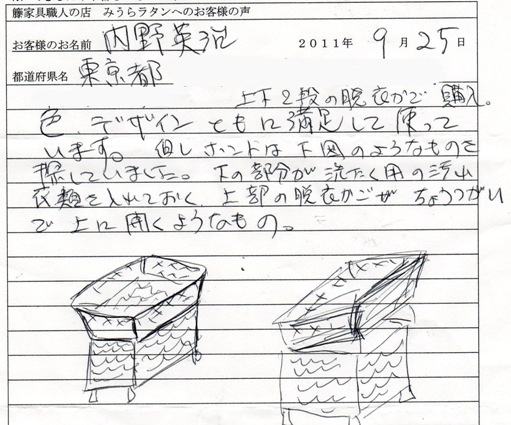 籐家具職人の店　みうらラタンへのお客様の声
お客様のお名前　内野英治　2011年　9月25日
都道府県名　東京都
上下2段の脱衣かごで購入。
色、デザインともに満足して使って
います。但しホントは下図のようなものを
探していました。下の部分が洗たく用の汚れ
衣類を入れておく、上部の脱衣かごがちょうつがい
で上に開くようなもの。